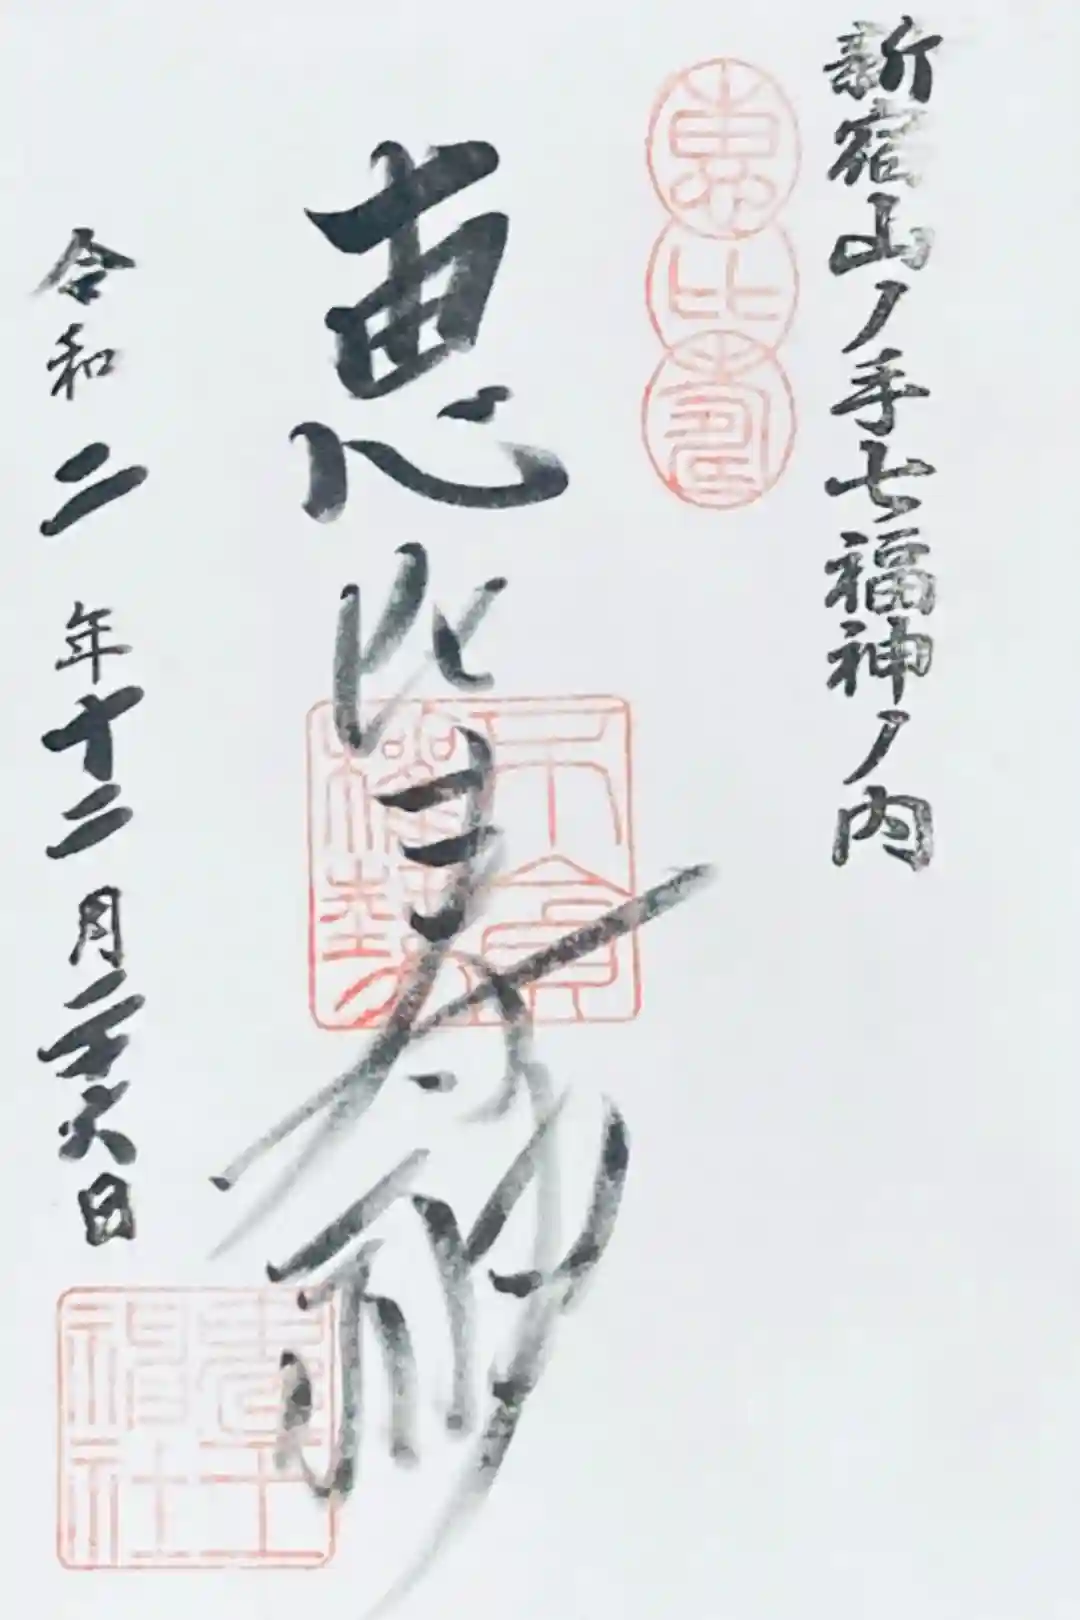 新宿山ノ手七福神ノ内
恵比寿
恵比寿神
令和二年十二月二十六日